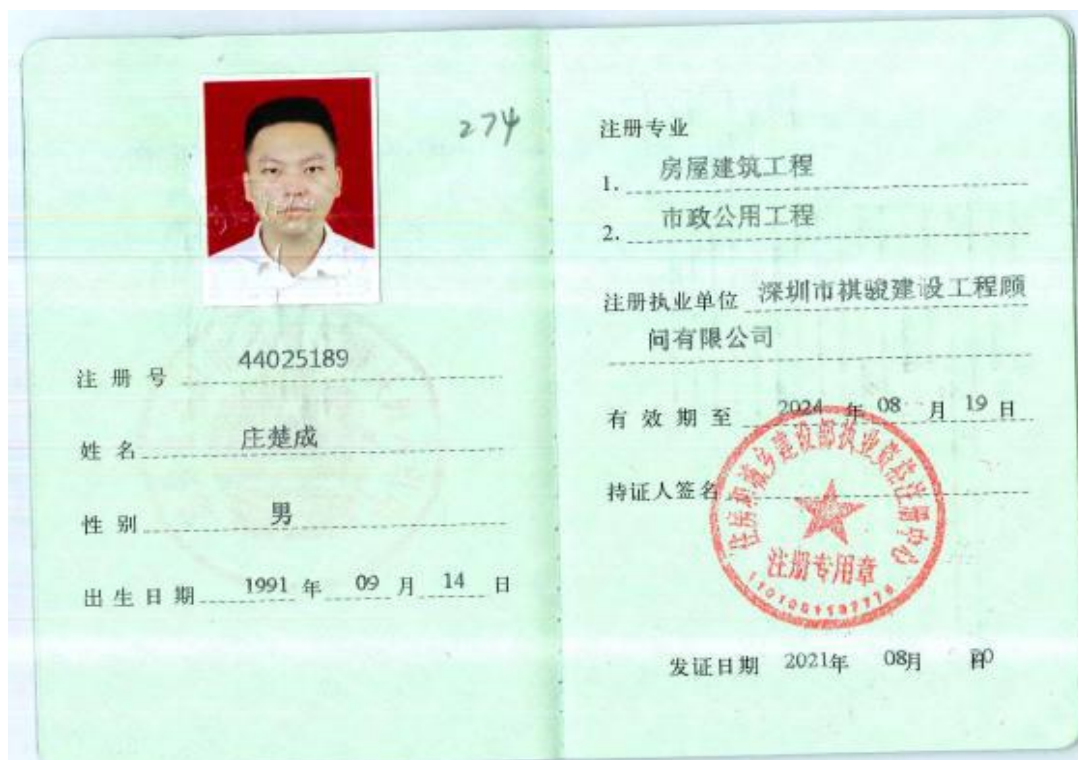 274
注册号 44025189
姓名 庄楚成
性别 男
出生日期 1991 年 09 月 14 日
注册专业
1. 房屋建筑工程
2. 市政公用工程
注册执业单位 深圳市祺骏建设工程顾
问有限公司
有效期至 2024 年 08 月 19 日
持证人签名
住房和城乡建设部执业资格注册中心
注册专用章
发证日期 2021年 08月 20日